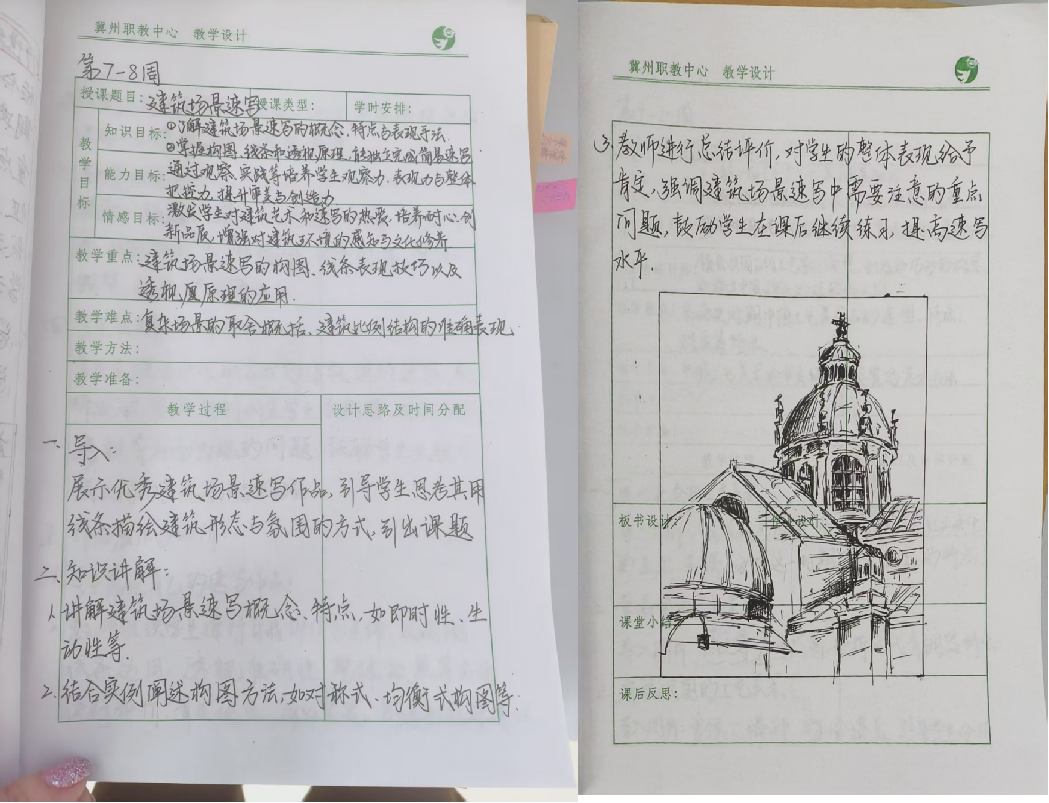 冀州职教中心 教学设计
第7-8周
授课题目：建筑场景速写 授课类型： 学时安排：
教学目标
知识目标：①了解建筑场景速写的概念，特点与表现手法.
②掌握构图、线条和透视原理，能独立完成简易速写
能力目标：通过观察、实践等培养学生观察力、表现力与整体
把握力，提升审美与创造力
情感目标：激发学生对建筑艺术和速写的热爱，培养耐心、创
新品质，增强对建筑环境的感知与文化修养
教学重点：建筑场景速写的构图、线条表现技巧以及
透视原理的应用.
教学难点：复杂场景的取舍概括、建筑比例结构的准确表现
教学方法：
教学准备：
教学过程 设计思路及时间分配
一、导入：
展示优秀建筑场景速写作品，引导学生思考其用
线条描绘建筑形态与氛围的方式，引出课题
二、知识讲解：
1.讲解建筑场景速写概念、特点，如即时性、生
动性等.
2.结合实例阐述构图方法，如对称式、均衡式构图等.
冀州职教中心 教学设计
3.教师进行总结评价，对学生的整体表现给予
肯定，强调建筑场景速写中需要注意的重点
问题，鼓励学生在课后继续练习，提高速写
水平.
板书设计：
课堂小结
课后反思：